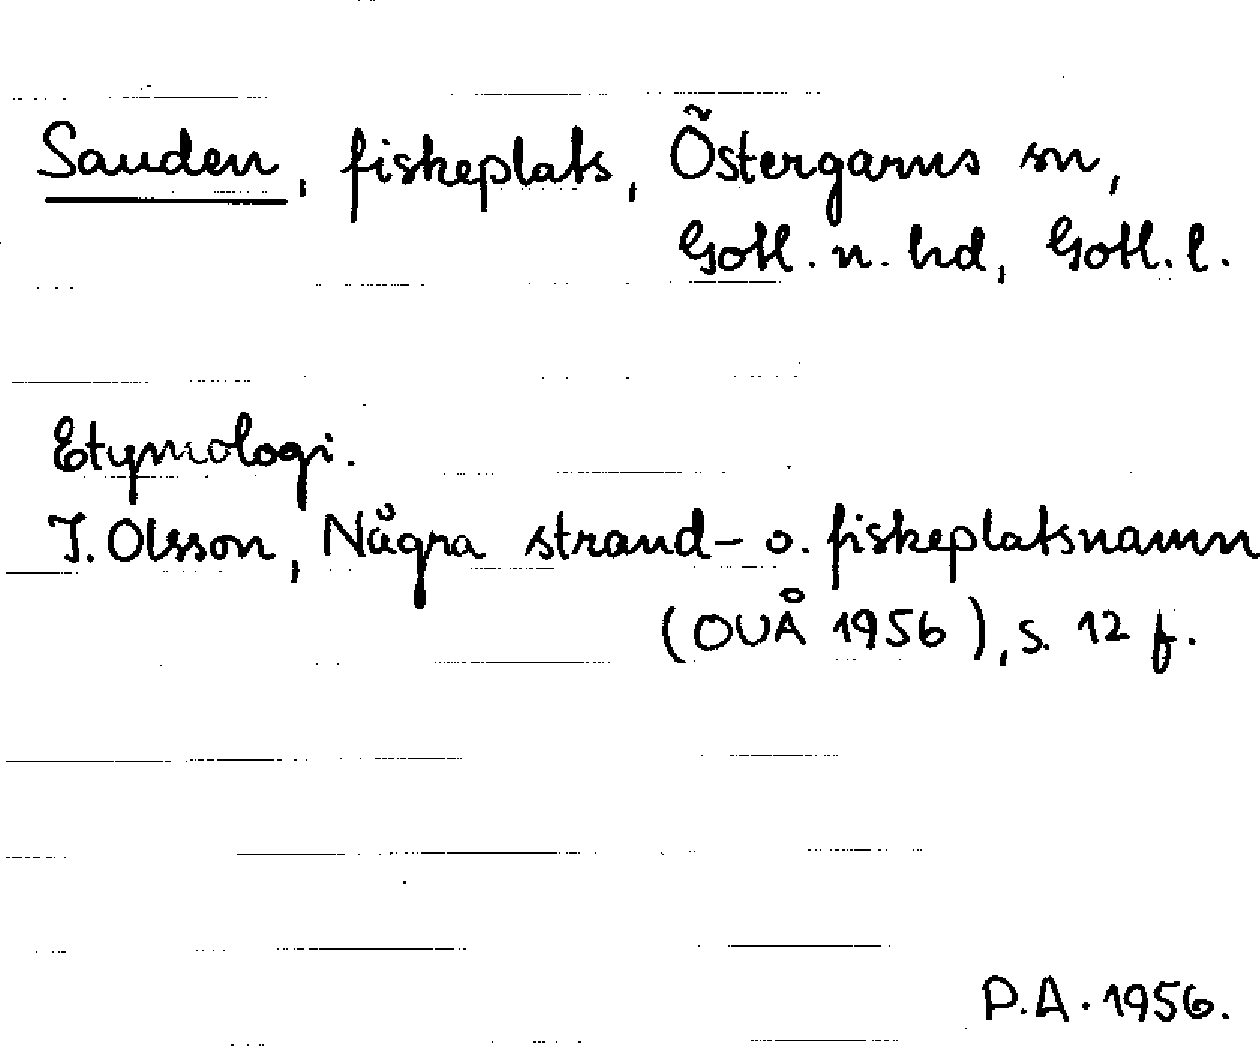 Sauden, fiskeplats, Östergarns sn,
Gotl. n. hd, Gotl. l.
Etymologi.
I. Olsson, Några strand- o. fiskeplatsnamn
(OUÅ 1956), s. 12 f.
P.A. 1956.